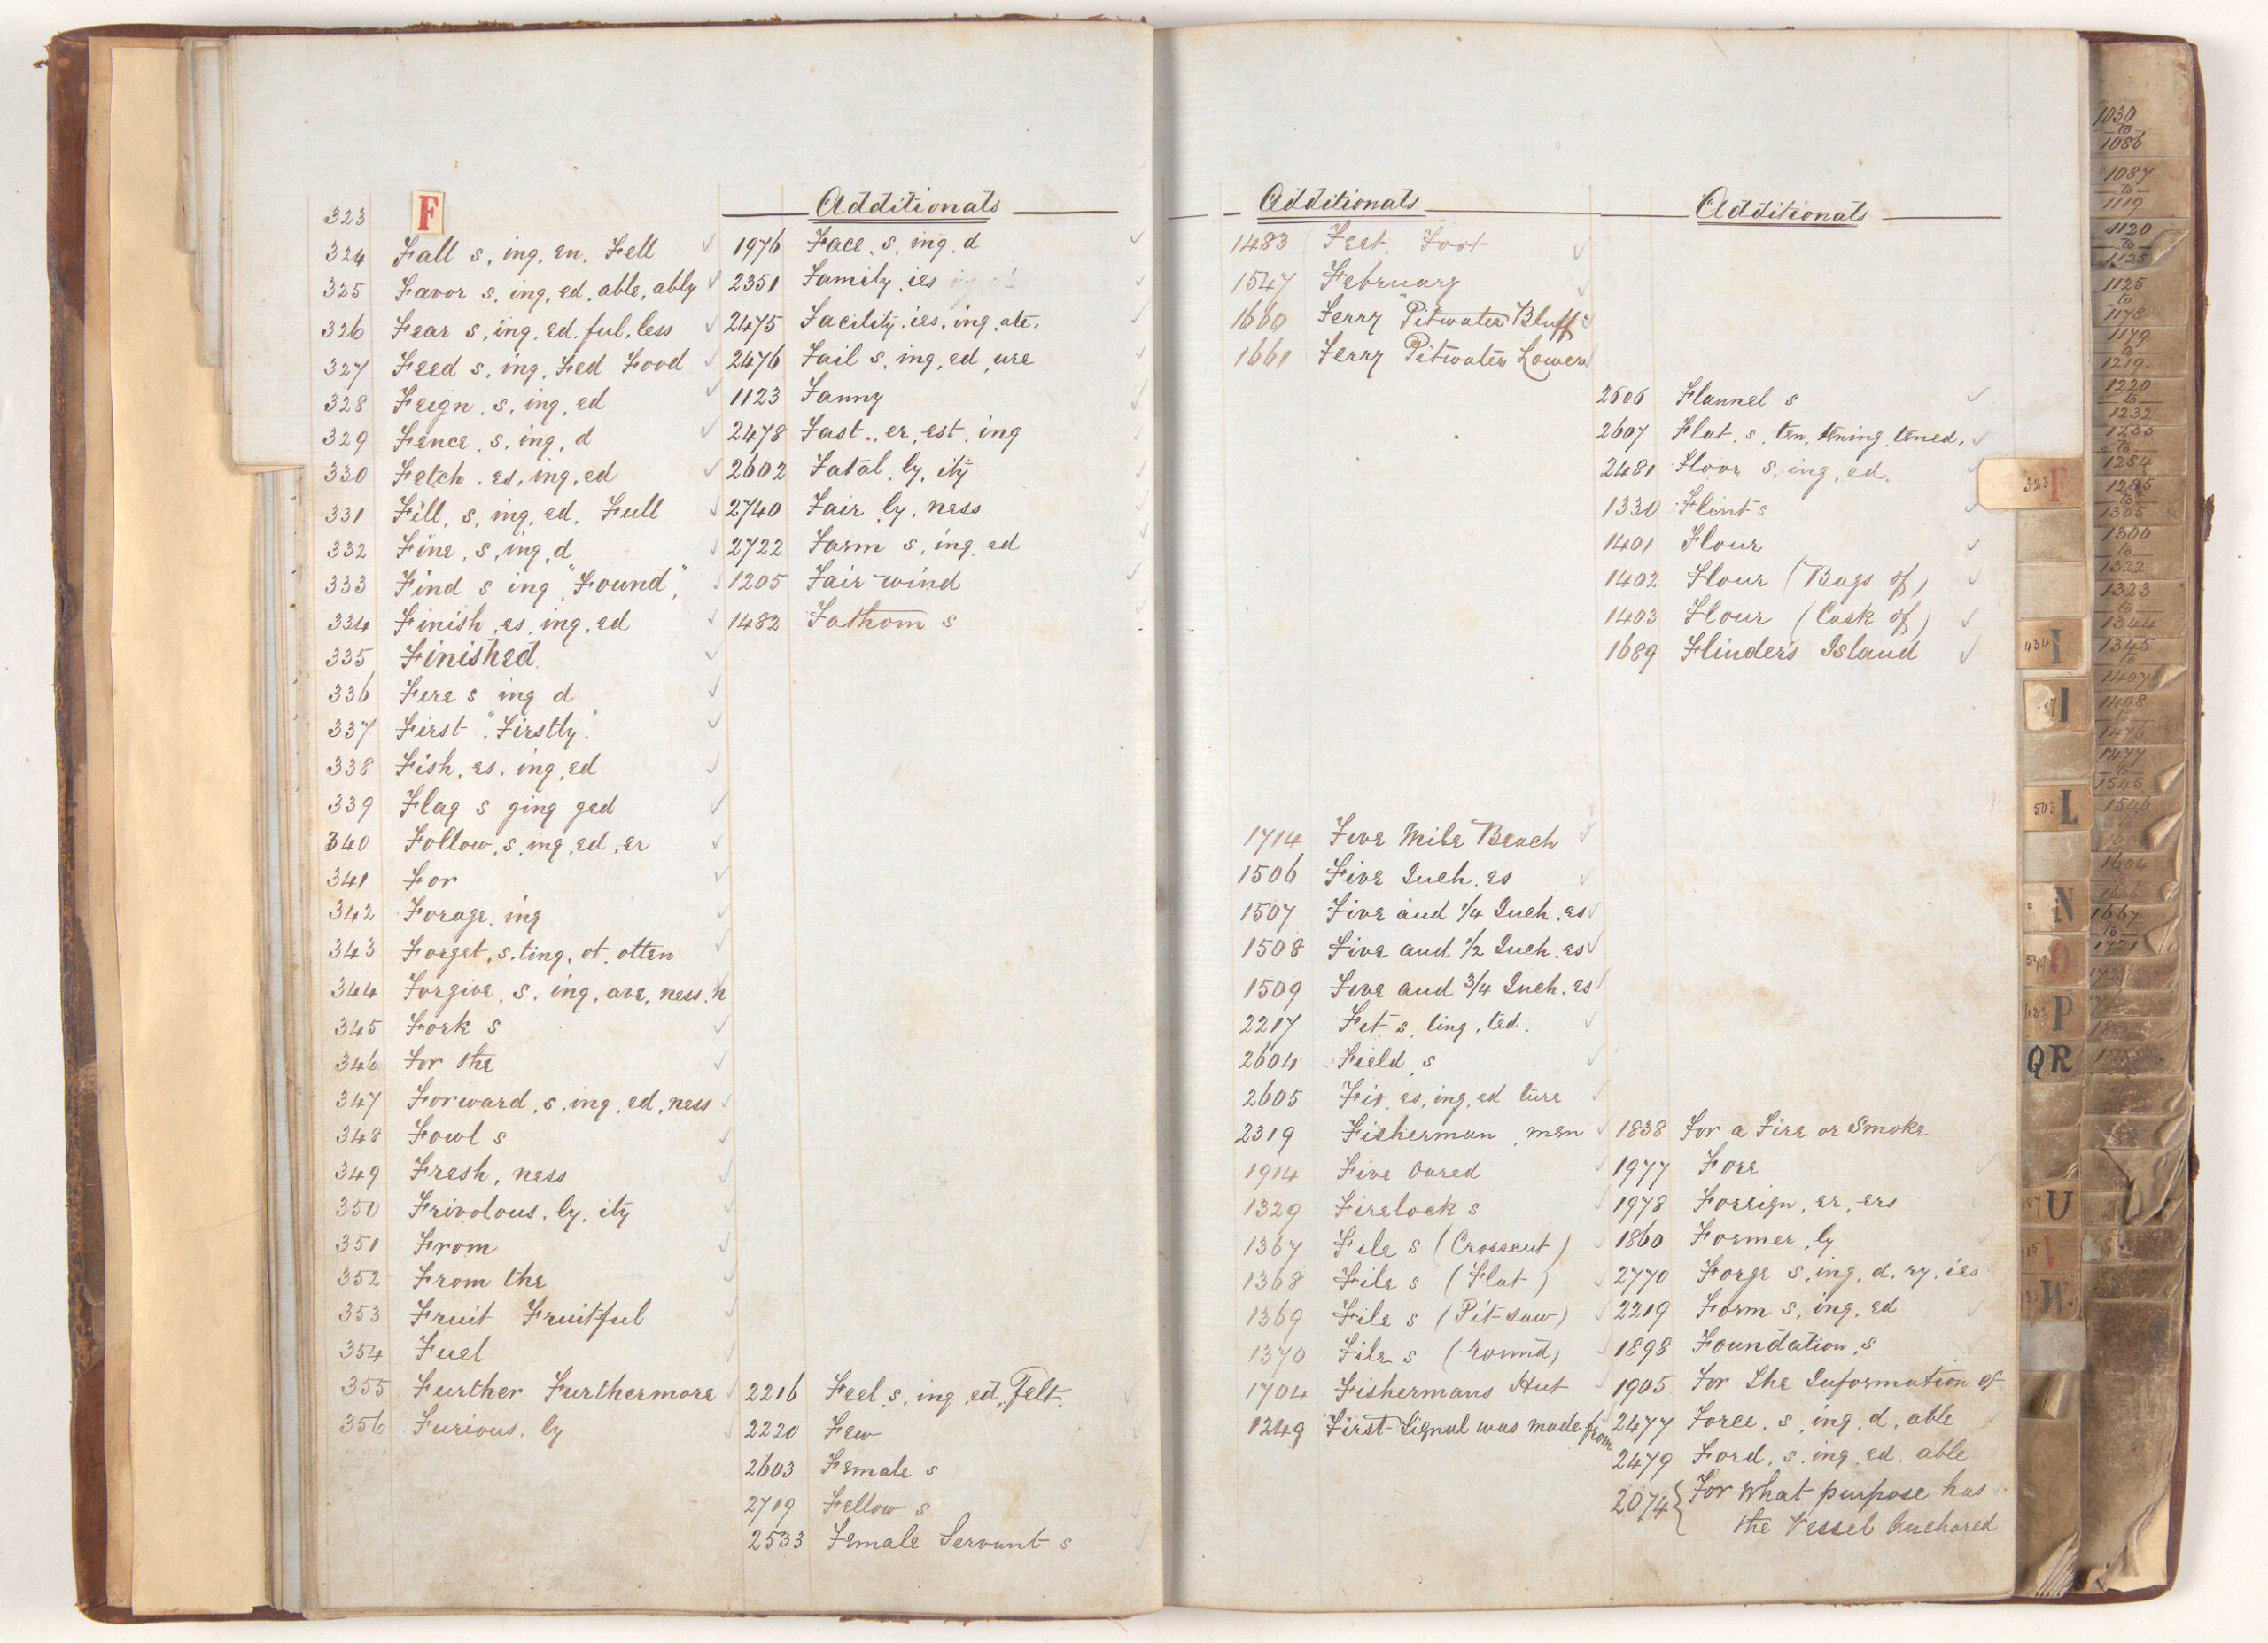 323 F
324 Fall s, ing, en, Fell
325 Favor s, ing, ed, able, ably
326 Fear s, ing, ed, ful, less
327 Feed s, ing, Fed Food
328 Feign, s, ing, ed
329 Fence, s, ing, d
330 Fetch, es, ing, ed
331 Fill, s, ing, ed, Full
332 Fine, s, ing, d
333 Find s ing "Found"
334 Finish, es, ing, ed
335 Finished
336 Fire s ing d
337 First "Firstly"
338 Fish, es, ing, ed
339 Flag s ging ged
340 Follow, s, ing, ed, er
341 For
342 Forage, ing
343 Forget, s, ting, ot, otten
344 Forgive, s, ing, ave, ness, n
345 Fork s
346 For the
347 Forward, s, ing, ed, ness
348 Fowl s
349 Fresh, ness
350 Frivolous, ly, ity
351 From
352 From the
353 Fruit Fruitful
354 Fuel
355 Further Furthermore
356 Furious, ly
Additionals
1976 Face, s, ing, d
2351 Family, ies
2475 Facility, ies, ing, ate.
2476 Fail s, ing, ed, ure
1123 Fanny
2478 Fast, er, est, ing
2602 Fatal, ly, ity
2740 Fair, ly, ness
2722 Farm s, ing, ed
1205 Fair-wind
1482 Fathom s
2216 Feel, s, ing, ed, Felt.
2220 Few
2603 Female s
2719 Fellow s
2533 Female Servant s
Additionals
1483 Feet, Foot
1547 February
1660 Ferry "Pitwater Bluff"
1661 Ferry Pitwater Lower
1714 Five Mile Beach
1506 Five Inch, es
1507 Five and 1/4 Inch, es
1508 Five and 1/2 Inch, es
1509 Five and 3/4 Inch, es
2217 Fit s, ting, ted,
2604 Field, s
2605 Fix, es, ing, ed ture
2319 Fisherman, men
1914 Five Oared
1329 Firelock s
1367 File s (Crosscut)
1368 File s (Flat)
1369 File s (Pit-saw)
1370 File s (round)
1704 Fishermans Hut
1249 First Signal was made from
Additionals
2606 Flannel s
2607 Flat, s, ten, tening, tened,
2481 Floor s, ing, ed.
1330 Flint s
1401 Flour
1402 Flour (Bags of)
1403 Flour (Cask of)
1689 Flinders Island
1838 For a Fire or Smoke
1977 Fore
1978 Foreign, er, ers
1860 Former, ly
2770 Forge s, ing, d, ry, ies
2219 Form s, ing, ed
1898 Foundation, s
1905 For The Information of
2477 Force, s, ing, d, able
2479 Ford, s, ing, ed, able
2074 { For what purpose has
the Vessel Anchored
323 F
434 I
I
503 L
N
O
P
QR
U
V
W
1030 to 1086
1087 to 1119
1120 to 1125
1125 to 1178
1179 to 1219
1220 to 1232
1233 to 1284
1285 to 1305
1306 to 1322
1323 to 1344
1345 to 1407
1408
1476
1477 to 1545
1546
1667 to 1721